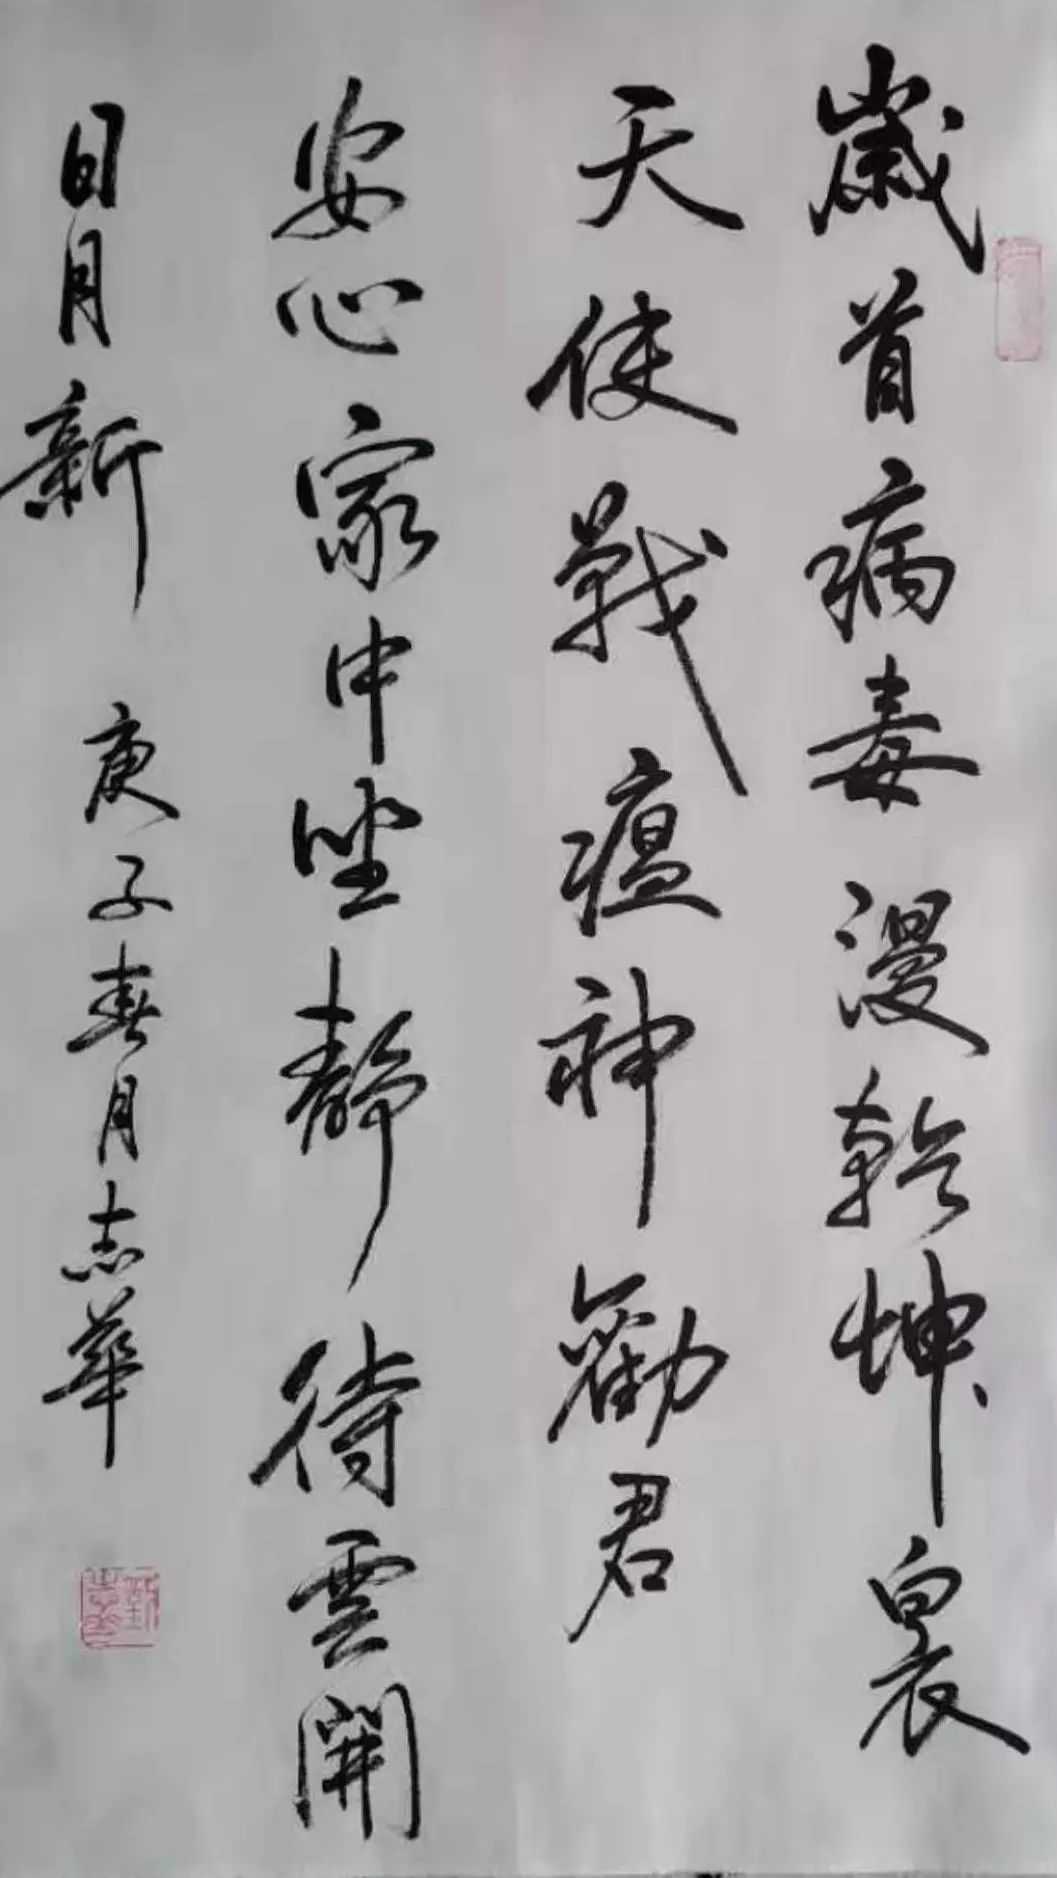 歲首病毒漫乾坤白衣
天使戰瘟神勸君
安心家中坐靜待雲開
日月新 庚子春月志華